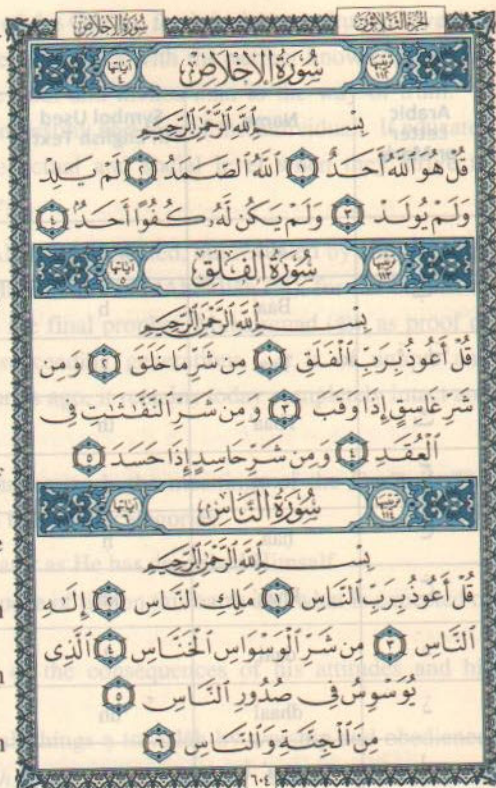 سُورَةُ الإِخْلَاصِ الجُزْءُ الثَّلَاثُونَ
تَرْتِيبُهَا ١١٢ سُورَةُ الإِخْلَاصِ آيَاتُهَا ٤
بِسْمِ اللَّهِ الرَّحْمَٰنِ الرَّحِيمِ
قُلْ هُوَ اللَّهُ أَحَدٌ ١ اللَّهُ الصَّمَدُ ٢ لَمْ يَلِدْ
وَلَمْ يُولَدْ ٣ وَلَمْ يَكُن لَّهُۥ كُفُوًا أَحَدٌۢ ٤
تَرْتِيبُهَا ١١٣ سُورَةُ الفَلَقِ آيَاتُهَا ٥
بِسْمِ اللَّهِ الرَّحْمَٰنِ الرَّحِيمِ
قُلْ أَعُوذُ بِرَبِّ الْفَلَقِ ١ مِن شَرِّ مَا خَلَقَ ٢ وَمِن
شَرِّ غَاسِقٍ إِذَا وَقَبَ ٣ وَمِن شَرِّ النَّفَّاثَاتِ فِي
الْعُقَدِ ٤ وَمِن شَرِّ حَاسِدٍ إِذَا حَسَدَ ٥
تَرْتِيبُهَا ١١٤ سُورَةُ النَّاسِ آيَاتُهَا ٦
بِسْمِ اللَّهِ الرَّحْمَٰنِ الرَّحِيمِ
قُلْ أَعُوذُ بِرَبِّ النَّاسِ ١ مَلِكِ النَّاسِ ٢ إِلَٰهِ
النَّاسِ ٣ مِن شَرِّ الْوَسْوَاسِ الْخَنَّاسِ ٤ الَّذِي
يُوَسْوِسُ فِي صُدُورِ النَّاسِ ٥
مِنَ الْجِنَّةِ وَالنَّاسِ ٦
٦٠٤